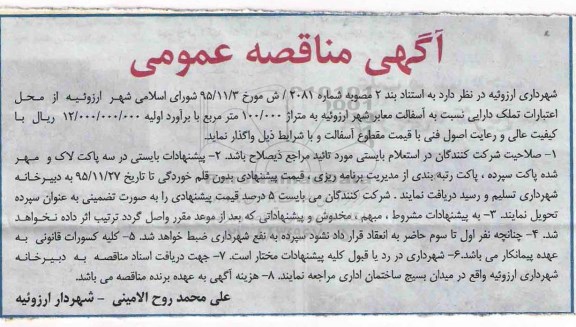 آگهی مناقصه عمومی
شهرداری ارزوئیه در نظر دارد به استناد بند ۲ مصوبه شماره ۴۰۸۱ / ش مورخ ۹۵/۱۱/۳ شورای اسلامی شهر ارزوئیه از محل
اعتبارات تملک دارایی نسبت به آسفالت معابر شهر ارزوئیه به متراژ ۱۰۰/۰۰۰ متر مربع با برآورد اولیه ۱۲/۰۰۰/۰۰۰/۰۰۰ ریال با
کیفیت عالی و رعایت اصول فنی با قیمت مقطوع آسفالت و با شرایط ذیل واگذار نماید.
۱- صلاحیت شرکت کنندگان در استعلام بایستی مورد تائید مراجع ذیصلاح باشد. ۲- پیشنهادات بایستی در سه پاکت لاک و مهر
شده پاکت سپرده ، پاکت رتبه بندی از مدیریت برنامه ریزی ، قیمت پیشنهادی بدون قلم خوردگی تا تاریخ ۹۵/۱۱/۲۷ به دبیرخانه
شهرداری تسلیم و رسید دریافت نمایند . شرکت کنندگان می بایست ۵ درصد قیمت پیشنهادی را به صورت تضمینی به عنوان سپرده
تحویل نمایند. ۳- به پیشنهادات مشروط ، مبهم ، مخدوش و پیشنهاداتی که بعد از موعد مقرر واصل گردد ترتیب اثر داده نخواهد
شد. ۴- چنانچه نفر اول تا سوم حاضر به انعقاد قرار داد نشود سپرده به نفع شهرداری ضبط خواهد شد. ۵- کلیه کسورات قانونی به
عهده پیمانکار می باشد.۶- شهرداری در رد یا قبول کلیه پیشنهادات مختار است. ۷- جهت دریافت اسناد مناقصه به دبیرخانه
شهرداری ارزوئیه واقع در میدان بسیج ساختمان اداری مراجعه نمایند. ۸- هزینه آگهی به عهده برنده مناقصه می باشد.
علی محمد روح الامینی - شهردار ارزوئیه